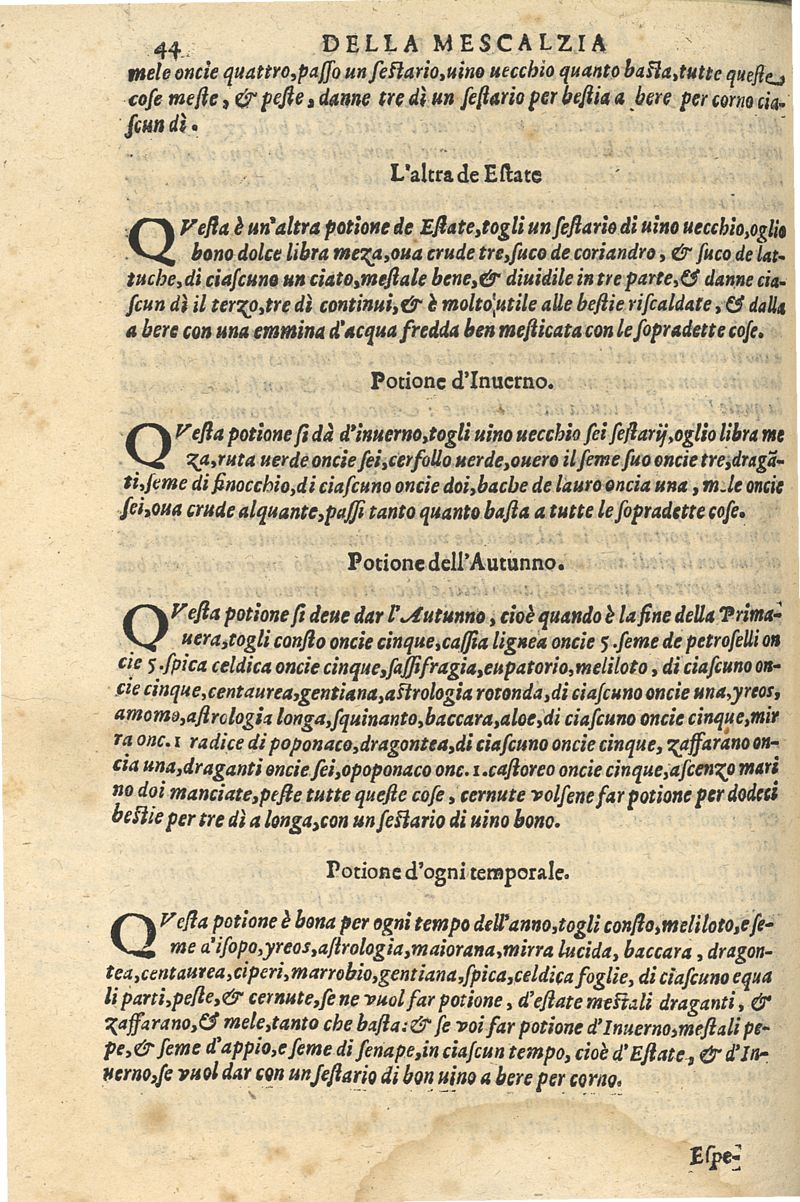 44 DELLA MESCALZIA
mele oncie quattro, paſſo un ſeſtario, uino uecchio quanto baſta, tutte queſte
coſe meſte, & peſte, danne tre dì un ſeſtario per beſtia a bere per corno cia-
ſcun dì.
L'altra de Eſtate
QVeſta è un'altra potione de Eſtate, togli un ſeſtario di uino uecchio, oglio
bono dolce libra meza, oua crude tre, ſuco de coriandro, & ſuco de lat-
tuche, di ciaſcuno un ciato, meſtale bene, & diuidile in tre parte, & danne cia-
ſcun dì il terzo, tre dì continui, & è molto utile alle beſtie riſcaldate, & dalla
a bere con una emmina d'acqua fredda ben meſticata con le ſopradette coſe.
Potione d'Inuerno.
QVeſta potione ſi dà d'inuerno, togli uino uecchio ſei ſeſtarij, oglio libra me
za, ruta uerde oncie ſei, cerfollo uerde, ouero il ſeme ſuo oncie tre, dragã-
ti, ſeme di finocchio, di ciaſcuno oncie doi, bache de lauro oncia una, mele oncie
ſei, oua crude alquante, paſſi tanto quanto baſta a tutte le ſopradette coſe.
Potione dell'Autunno.
QVeſta potione ſi deue dar l'Autunno, cioè quando è la fine della Prima-
uera, togli conſto oncie cinque, caſſia lignea oncie 5. ſeme de petroſelli on
cie 5. ſpica celdica oncie cinque, ſaſſifragia, eupatorio, meliloto, di ciaſcuno on-
cie cinque, centaurea, gentiana, aſtrologia rotonda, di ciaſcuno oncie una, yreos,
amomo, aſtrologia longa, ſquinanto, baccara, aloe, di ciaſcuno oncie cinque, mir
ra onc. 1 radice di poponaco, dragontea, di ciaſcuno oncie cinque, zaffarano on-
cia una, draganti oncie ſei, opoponaco onc. 1. caſtoreo oncie cinque, aſcenzo mari
no doi manciate, peſte tutte queſte coſe, cernute volſene far potione per dodeci
beſtie per tre dì a longa, con un ſeſtario di uino bono.
Potione d'ogni temporale.
QVeſta potione è bona per ogni tempo dell'anno, togli conſto, meliloto, e ſe-
me d'iſopo, yreos, aſtrologia, maiorana, mirra lucida, baccara, dragon-
tea, centaurea, ciperi, marrobio, gentiana, ſpica, celdica foglie, di ciaſcuno equa
li parti, peſte, & cernute, ſe ne vuol far potione, d'eſtate meſtali draganti, &
zaffarano, & mele, tanto che baſta: & ſe voi far potione d'Inuerno, meſtali pe-
pe, & ſeme d'appio, e ſeme di ſenape, in ciaſcun tempo, cioè d'Eſtate, & d'In-
uerno, ſe vuol dar con un ſeſtario di bon uino a bere per corno.
Eſpe-